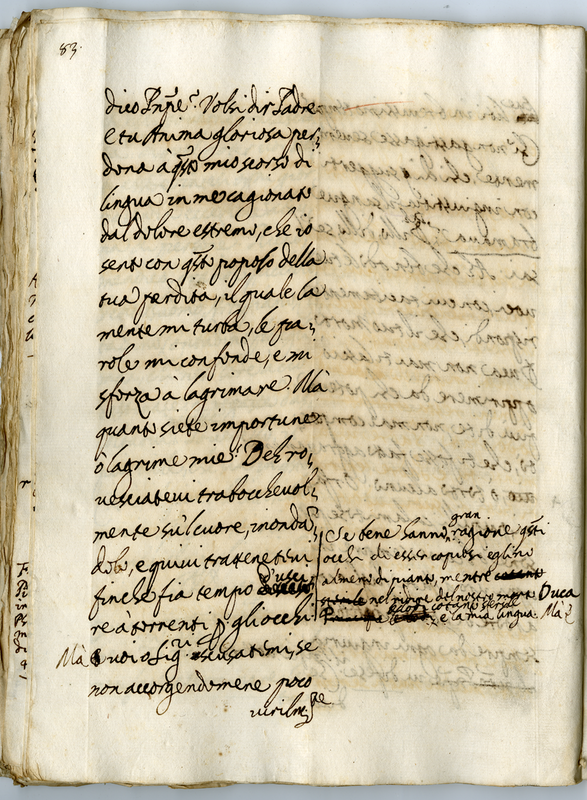 83.
dico Prñpe? Volsi dir Padre
e tu Anima gloriosa per,
dona à q̃sto mio scorso di
lingua in me cagionato
dal dolore estremo, che io
sento con q̃sto popolo della
tua perdita, il quale la
mente mi turba, le pa,
role mi confonde, e mi
sforza à lagrimare. Mà
quanto siete importune
ò lagrime mie? Deh ro,
vesciatevi trabocchevol,
mente su'l cuore, inonda,
dolo, e quivi trattenetevi
finche fia tempo d'usci,
re a torrenti p gli occhi
Mà voi o Sig.ri scusatemi, se
non accorgendomene poco
virilm.te
Se bene hanno gran ragione q̃sti
occhi di esser copiosi eglino
almeno di pianto, mentre
nel ridire del nostro morto Duca
è la mia lingua. Mà